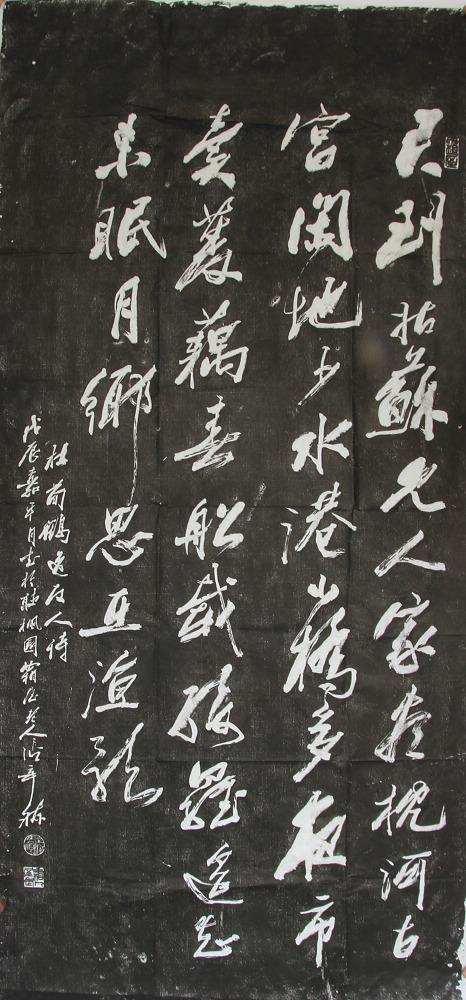 君到姑蘇見人家盡枕河古
宮閑地少水港小橋多夜市
賣菱藕春船載綺羅遙知
未眠月鄉思在漁歌
杜荀鶴送友人詩
戊辰嘉平月書於駐楓園霜屋老人張辛稼